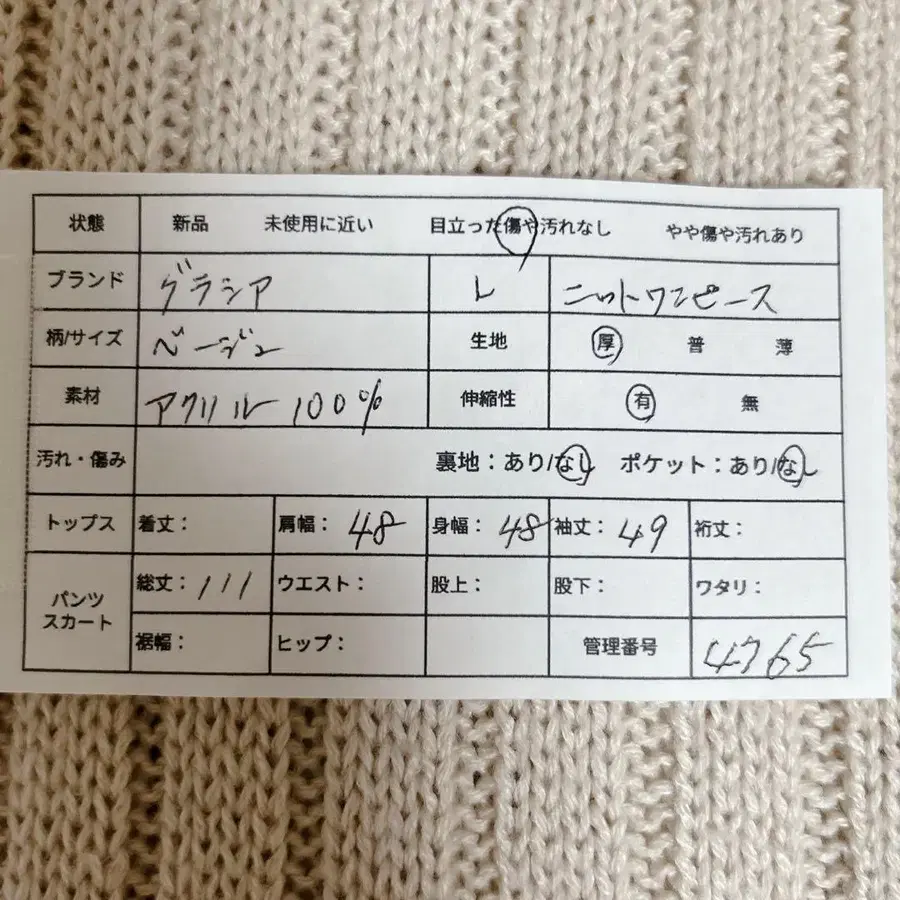 状態 新品 未使用に近い 目立った傷や汚れなし やや傷や汚れあり
ブランド グラシア L ニットワンピース
柄/サイズ ベージュ 生地 厚 普 薄
素材 アクリル 100% 伸縮性 有 無
汚れ・傷み 裏地：あり/なし ポケット：あり/なし
トップス 着丈： 肩幅： 48 身幅： 48 袖丈： 49 裄丈：
パンツ スカート 総丈： 111 ウエスト： 股上： 股下： ワタリ：
裾幅： ヒップ： 管理番号 4765